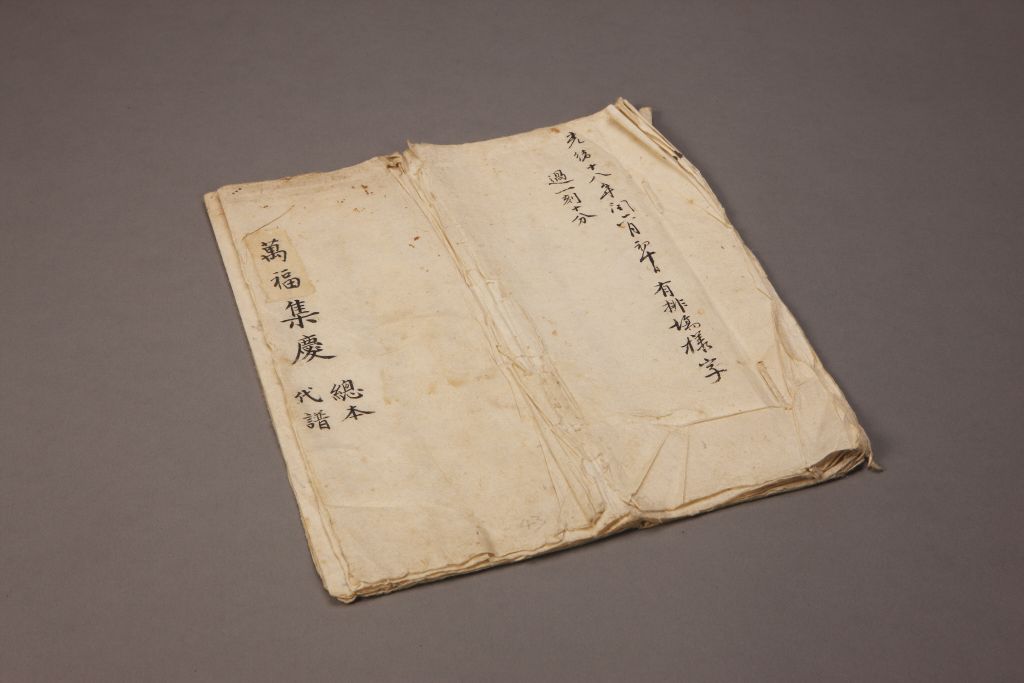 光緒十八年閏六月初十日有排塲樣字
過一刻十分
萬福集慶
總本
代譜